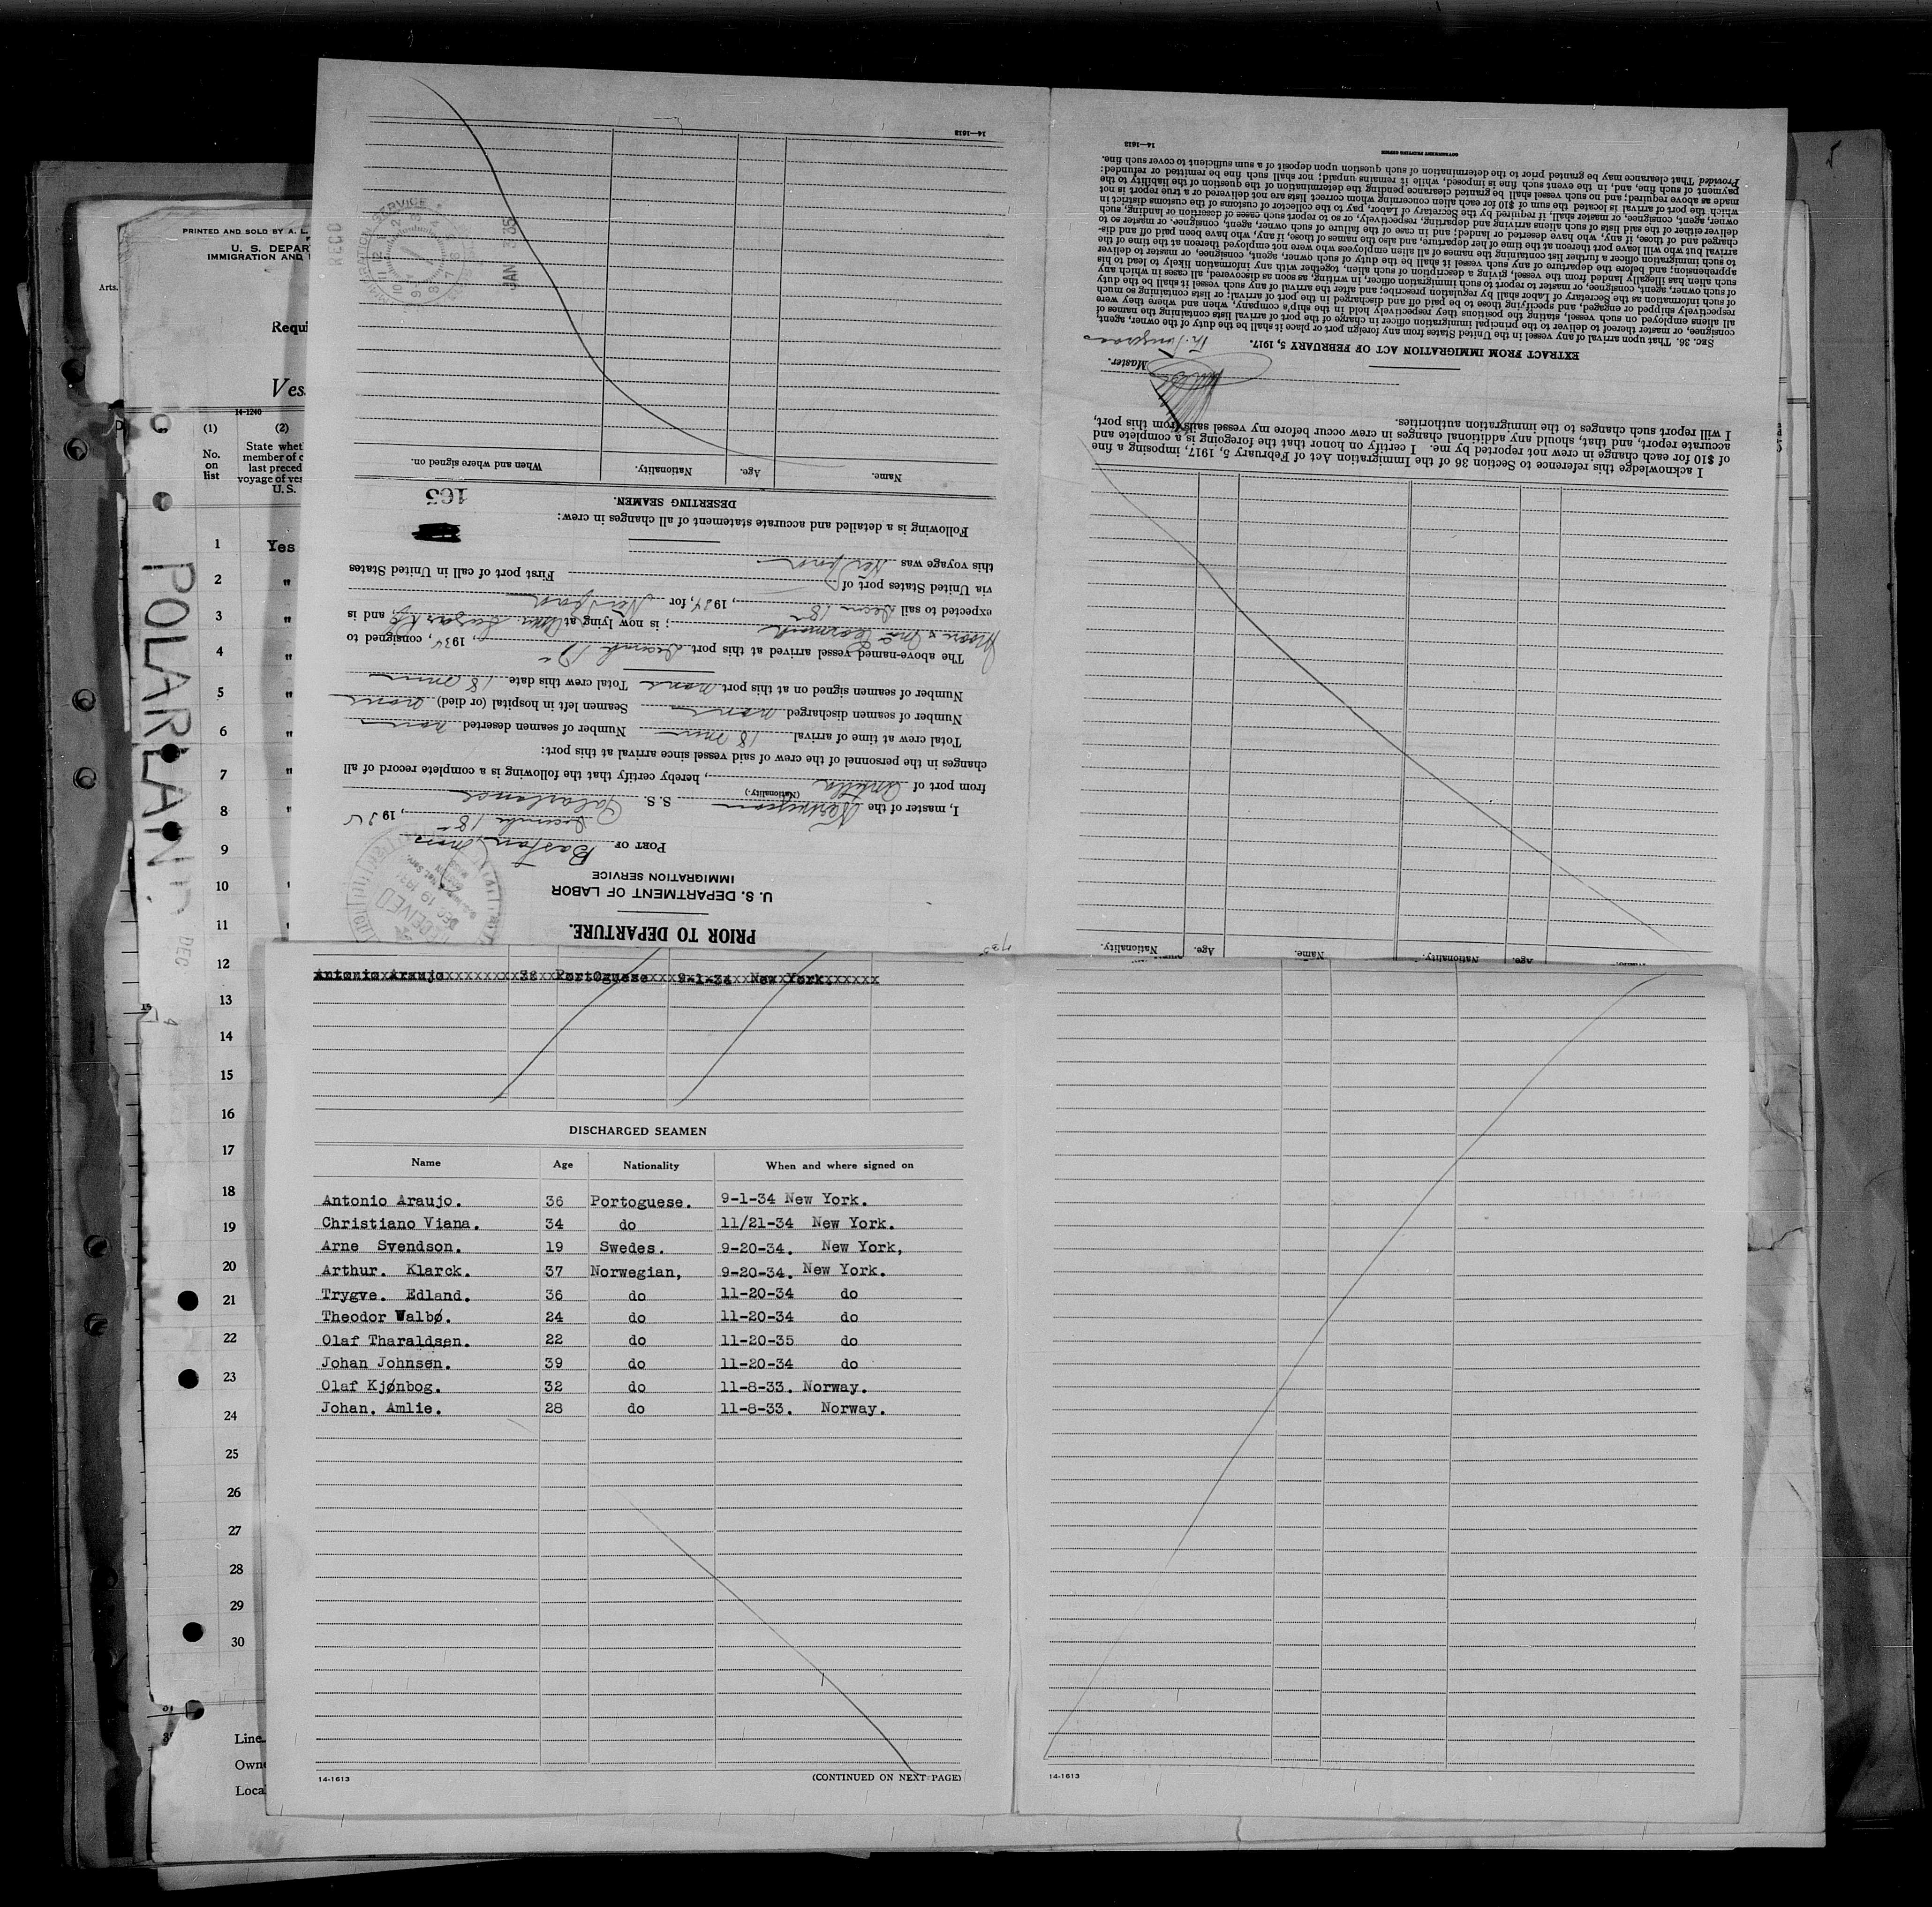 PRINTED AND SOLD BY A. L.
U. S. DEPAR
IMMIGRATION AND
Arts.
Requi
Ves
14-1240
(1) (2)
No. on list
State whet
member of c
last preced
voyage of ves
U. S.
1 Yes
2 "
3 "
4 "
5 "
6 "
7 "
8 "
9
10
11
12
13
14
15
16
17
18
19
20
21
22
23
24
25
26
27
28
29
30
Line
Own
Loca
POLARLAND DEC
PRIOR TO DEPARTURE.
U. S. DEPARTMENT OF LABOR
IMMIGRATION SERVICE
RECEIVED
DEC 19 193
PORT OF Boston Mass
December 18, 193
I, master of the Norwegian S. S. Polarland
(Nationality.)
from port of Antilla, hereby certify that the following is a complete record of all
changes in the personnel of the crew of said vessel since arrival at this port:
Total crew at time of arrival 18 men Number of seamen deserted none
Number of seamen discharged none Seamen left in hospital (or died) none
Number of seamen signed on at this port none Total crew this date 18 men
The above-named vessel arrived at this port December 17, 1934, consigned to
Moore & McCormack; is now lying at Amer. Sugar, and is
expected to sail Decm 18, 1934, for New York
via United States port of First port of call in United States
this voyage was New York
Following is a detailed and accurate statement of all changes in crew:
165
DESERTING SEAMEN.
Name. Age. Nationality. When and where signed on.
REC'D
JAN 3 35
14—1613
Name. Age. Nationality. Name. Age. Nationality.
I acknowledge this reference to Section 36 of the Immigration Act of February 5, 1917, imposing a fine
of $10 for each change in crew not reported by me. I certify on honor that the foregoing is a complete and
accurate report, and that, should any additional changes in crew occur before my vessel sails from this port,
I will report such changes to the immigration authorities.
Master.
EXTRACT FROM IMMIGRATION ACT OF FEBRUARY 5, 1917.
SEC. 36. That upon arrival of any vessel in the United States from any foreign port or place it shall be the duty of the owner, agent,
consignee, or master thereof to deliver to the principal immigration officer in charge of the port of arrival lists containing the names of
all aliens employed on such vessel, stating the positions they respectively hold in the ship's company, when and where they were
respectively shipped or engaged, and specifying those to be paid off and discharged in the port of arrival; or lists containing so much
of such information as the Secretary of Labor shall by regulation prescribe; and after the arrival of any such vessel it shall be the duty
of such owner, agent, consignee, or master to report to such immigration officer, in writing, as soon as discovered, all cases in which any
such alien has illegally landed from the vessel, giving a description of such alien, together with any information likely to lead to his
apprehension; and before the departure of any such vessel it shall be the duty of such owner, agent, consignee, or master to deliver
to such immigration officer a further list containing the names of all alien employees who were not employed thereon at the time of the
arrival but who will leave port thereon at the time of her departure, and also the names of those, if any, who have been paid off and dis-
charged and of those, if any, who have deserted or landed; and in case of the failure of such owner, agent, consignee, or master so to
deliver either of the said lists of such aliens arriving and departing, respectively, or so to report such cases of desertion or landing, such
owner, agent, consignee, or master shall, if required by the Secretary of Labor, pay to the collector of customs of the customs district in
which the port of arrival is located the sum of $10 for each alien concerning whom correct lists are not delivered or a true report is not
made as above required; and no such vessel shall be granted clearance pending the determination of the question of the liability to the
payment of such fine, and, in the event such fine is imposed, while it remains unpaid; nor shall such fine be remitted or refunded:
Provided, That clearance may be granted prior to the determination of such question upon deposit of a sum sufficient to cover such fine.
14—1613 GOVERNMENT PRINTING OFFICE
Antonio Araujo 36 PortOguese 9-1-34 New York
DISCHARGED SEAMEN
Name Age Nationality When and where signed on
Antonio Araujo. 36 Portoguese. 9-1-34 New York.
Christiano Viana. 34 do 11/21-34 New York.
Arne Svendson. 19 Swedes. 9-20-34. New York,
Arthur. Klarck. 37 Norwegian, 9-20-34. New York.
Trygve. Edland. 36 do 11-20-34 do
Theodor Walbø. 24 do 11-20-34 do
Olaf Tharaldsen. 22 do 11-20-35 do
Johan Johnsen. 39 do 11-20-34 do
Olaf Kjønbog. 32 do 11-8-33. Norway.
Johan. Amlie. 28 do 11-8-33. Norway.
14-1613 (CONTINUED ON NEXT PAGE)
14-1613